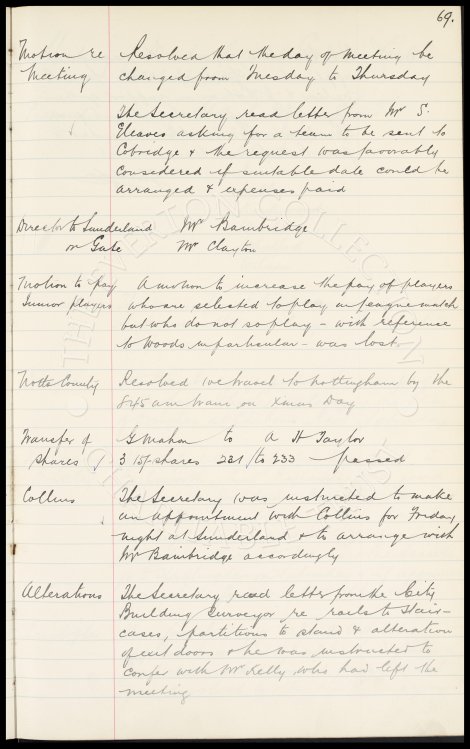 69.
Motion re Resolved that the day of Meeting be
Meeting changed from Tuesday to Thursday
The Secretary read letter from Mr S.
Eleaves asking for a team to be sent to
Cobridge & the request was favorably
considered if suitable date could be
arranged & expenses paid
Director to Sunderland Mr Bambridge
on Gate Mr Clayton
Motion to pay A motion to increase the pay of players
Junior players who are selected to play in league match
but who do not so play – with reference
to Woods in particular – was lost
Notts County Resolved we travel to Nottingham by the
8.45 am train on Xmas Day
Transfer of G Mahon to A H Taylor
Shares 3 15/- shares 231/to 233 passed
Collins The Secretary was instructed to make
an appointment with Collins for Friday
night at Sunderland & to arrange with
Mr Bainbridge accordingly
Alterations The Secretary read letter from the City
Building Surveyor re rails to Stair-
cases, partitions to stand & alteration
of exit doors & he was instructed to
confer with Mr Kelly who had left the
meeting
THE EVERTON COLLECTION